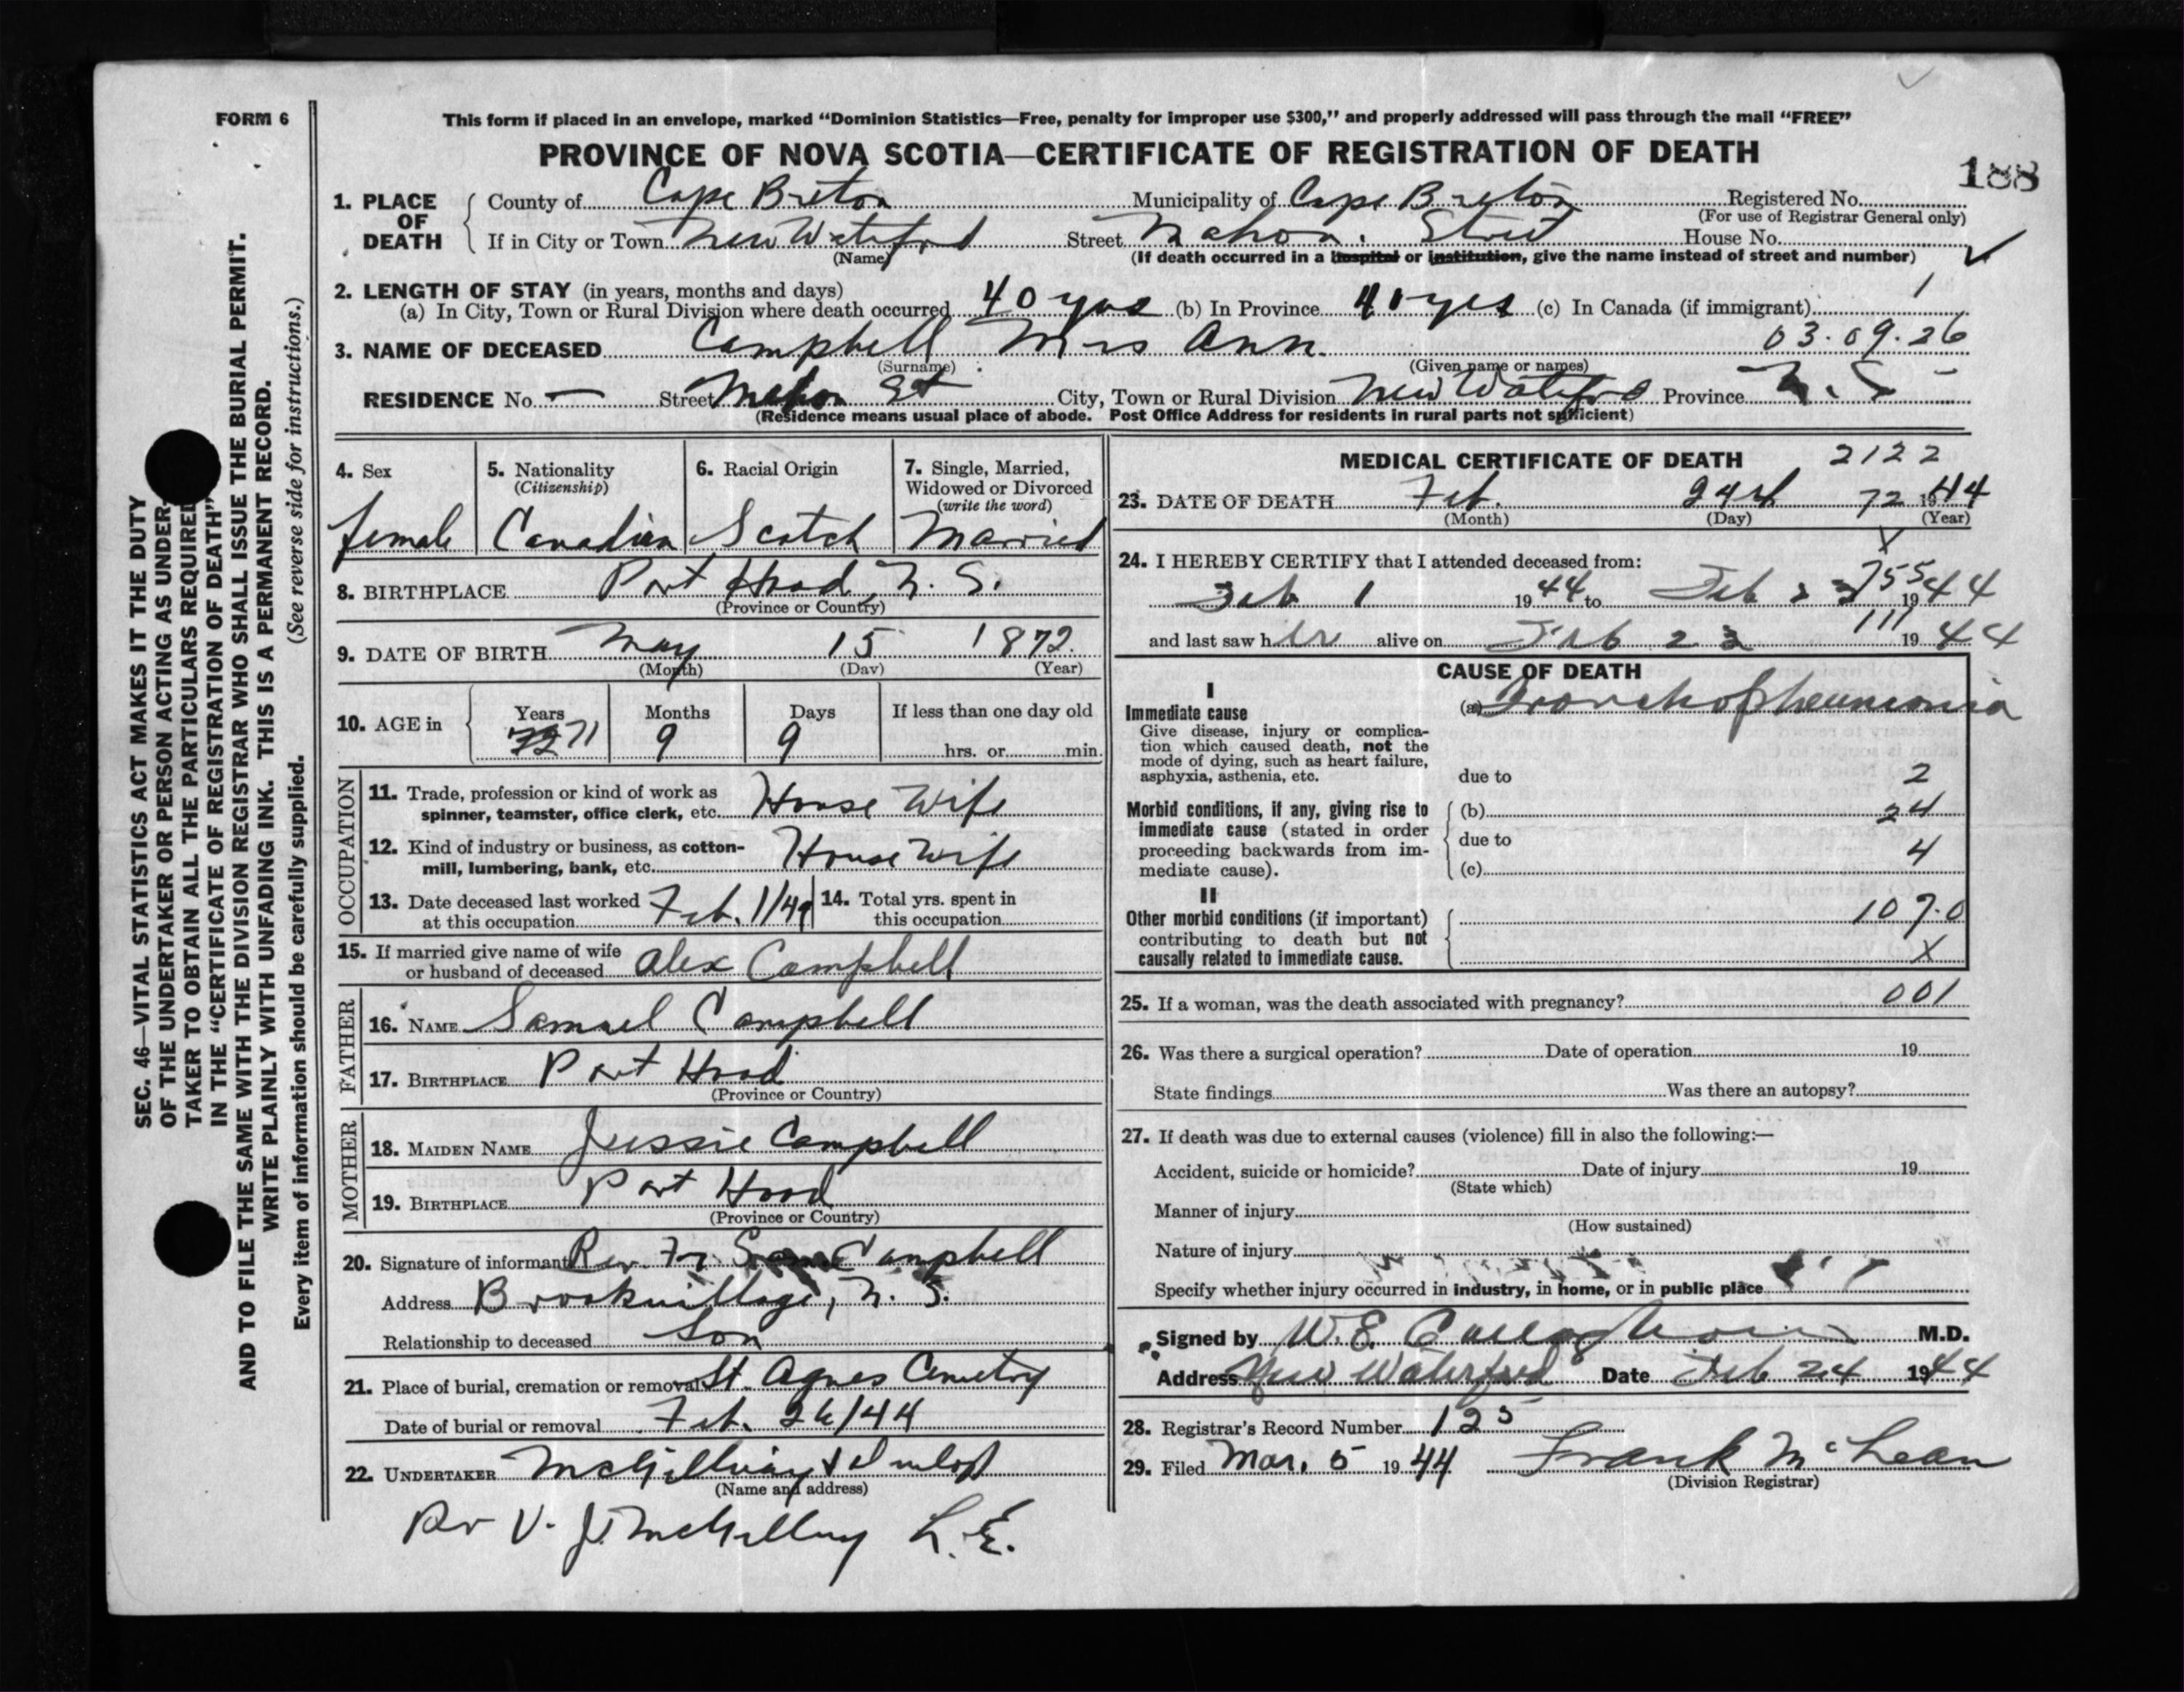 FORM 6
This form if placed in an envelope, marked “Dominion Statistics—Free, penalty for improper use $300,” and properly addressed will pass through the mail “FREE”
PROVINCE OF NOVA SCOTIA—CERTIFICATE OF REGISTRATION OF DEATH
188
1. PLACE OF DEATH { County of Cape Breton Municipality of Cape Breton Registered No.
(For use of Registrar General only)
If in City or Town New Waterford Street Mahon. Street House No.
(Name) (If death occurred in a hospital or institution, give the name instead of street and number)
2. LENGTH OF STAY (in years, months and days) 1
(a) In City, Town or Rural Division where death occurred 40 yrs (b) In Province 40 yrs (c) In Canada (if immigrant)
3. NAME OF DECEASED Campbell Mrs Ann. 03.09.26
(Surname) (Given name or names)
RESIDENCE No. — Street Mahon St City, Town or Rural Division New Waterford Province N.S.
(Residence means usual place of abode. Post Office Address for residents in rural parts not sufficient)
4. Sex 5. Nationality 6. Racial Origin 7. Single, Married,
(Citizenship) Widowed or Divorced
(write the word)
female Canadian Scotch Married
8. BIRTHPLACE Port Hood, N. S.
(Province or Country)
9. DATE OF BIRTH May 15 1872.
(Month) (Day) (Year)
10. AGE in { Years Months Days If less than one day old
72 71 9 9 hrs. or min.
OCCUPATION
11. Trade, profession or kind of work as
spinner, teamster, office clerk, etc. House Wife
12. Kind of industry or business, as cotton-
mill, lumbering, bank, etc. House Wife
13. Date deceased last worked 14. Total yrs. spent in
at this occupation Feb. 1/44 this occupation
15. If married give name of wife
or husband of deceased Alex Campbell
FATHER
16. NAME Samuel Campbell
17. BIRTHPLACE Port Hood
(Province or Country)
MOTHER
18. MAIDEN NAME Jessie Campbell
19. BIRTHPLACE Port Hood
(Province or Country)
20. Signature of informant Rev. Fr. Campbell
Address Brook Village, N. S.
Relationship to deceased Son
21. Place of burial, cremation or removal St. Agnes Cemetry
Date of burial or removal Feb. 26/44
22. UNDERTAKER McGillivray & Dunlop
(Name and address)
Per V. J. McGillivray L.E.
MEDICAL CERTIFICATE OF DEATH 2122
23. DATE OF DEATH Feb. 24th 72 1944
(Month) (Day) (Year)
X
24. I HEREBY CERTIFY that I attended deceased from:
755
Feb 1 1944 to Feb 23 1944
111
and last saw her alive on Feb 23 1944
CAUSE OF DEATH
I
Immediate cause (a) Bronchopheumonia
Give disease, injury or complica-
tion which caused death, not the
mode of dying, such as heart failure,
asphyxia, asthenia, etc. due to 2
Morbid conditions, if any, giving rise to { (b) 24
immediate cause (stated in order
proceeding backwards from im- due to 4
mediate cause). (c)
II
Other morbid conditions (if important) 107.0
contributing to death but not
causally related to immediate cause. X
25. If a woman, was the death associated with pregnancy? 001
26. Was there a surgical operation? Date of operation 19
State findings Was there an autopsy?
27. If death was due to external causes (violence) fill in also the following:—
Accident, suicide or homicide? Date of injury 19
(State which)
Manner of injury
(How sustained)
Nature of injury
Specify whether injury occurred in industry, in home, or in public place
Signed by W.E. Callaghan M.D.
Address New Waterford Date Feb 24 1944
28. Registrar's Record Number 125
29. Filed Mar. 5 1944 Frank McLean
(Division Registrar)
SEC. 46—VITAL STATISTICS ACT MAKES IT THE DUTY
OF THE UNDERTAKER OR PERSON ACTING AS UNDER-
TAKER TO OBTAIN ALL THE PARTICULARS REQUIRED
IN THE “CERTIFICATE OF REGISTRATION OF DEATH”
AND TO FILE THE SAME WITH THE DIVISION REGISTRAR WHO SHALL ISSUE THE BURIAL PERMIT.
WRITE PLAINLY WITH UNFADING INK. THIS IS A PERMANENT RECORD.
Every item of information should be carefully supplied. (See reverse side for instructions.)